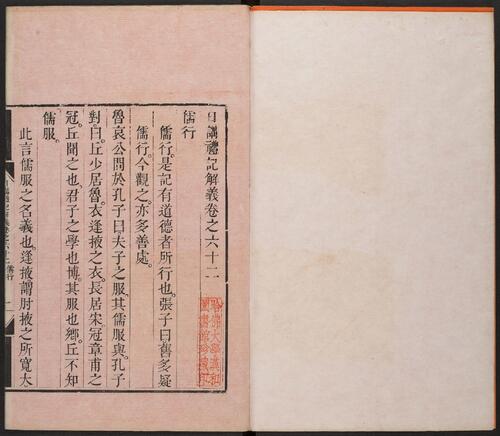 日講禮記解義卷之六十二
儒行
儒行是記有道德者所行也張子曰舊多疑
儒行今觀之亦多善處
魯哀公問於孔子曰夫子之服其儒服與孔子
對曰丘少居魯衣逢掖之衣長居宋冠章甫之
冠丘聞之也君子之學也博其服也鄉丘不知
儒服
此言儒服之名義也逢掖謂肘掖之所寬大
儒行
哈佛大學漢和
圖書館珍藏印